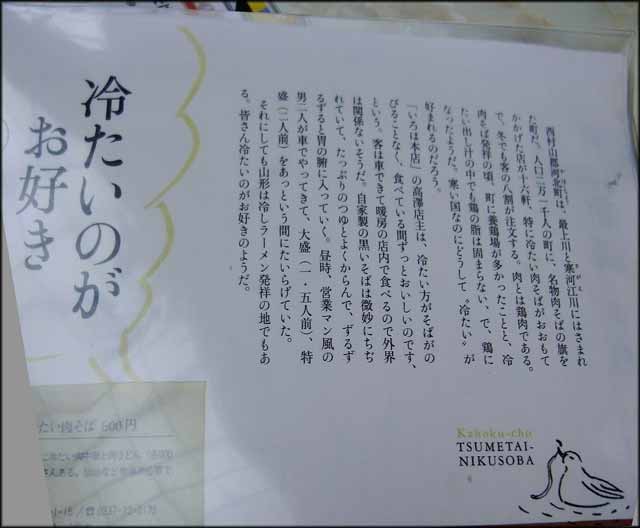 西村山郡河北町は、最上川と寒河江川にはさまれ
た町だ。人口二万一千人の町に、名物肉そばの旗を
かかげた店が十六軒、特に冷たい肉そばがおおもて
で、冬でも客の八割が注文する。肉とは鶏肉である。
肉そば発祥の頃、町に養鶏場が多かったことと、冷
たい出し汁の中でも鶏の脂は固まらない、で、鶏に
なったようだ。寒い国なのにどうして〝冷たい〟が
好まれるのだろう。
「いろは本店」の高澤店主は、冷たい方がそばがの
びることなく、食べている間ずっとおいしいのです、
という。客は車できて暖房の店内で食べるので外界
は関係ないそうだ。自家製の黒いそばは微妙にちぢ
れていて、たっぷりのつゆとよくからんで、ずるず
るずると胃の腑に入っていく。昼時、営業マン風の
男二人が車でやってきて、大盛（一・五人前）、特
盛（二人前）をあっという間にたいらげていた。
それにしても山形は冷しラーメン発祥の地でもあ
る。皆さん冷たいのがお好きのようだ。
冷たいのが
お好き
Kahoku-cho
TSUMETAI-
NIKUSOBA
たい肉そば 600円